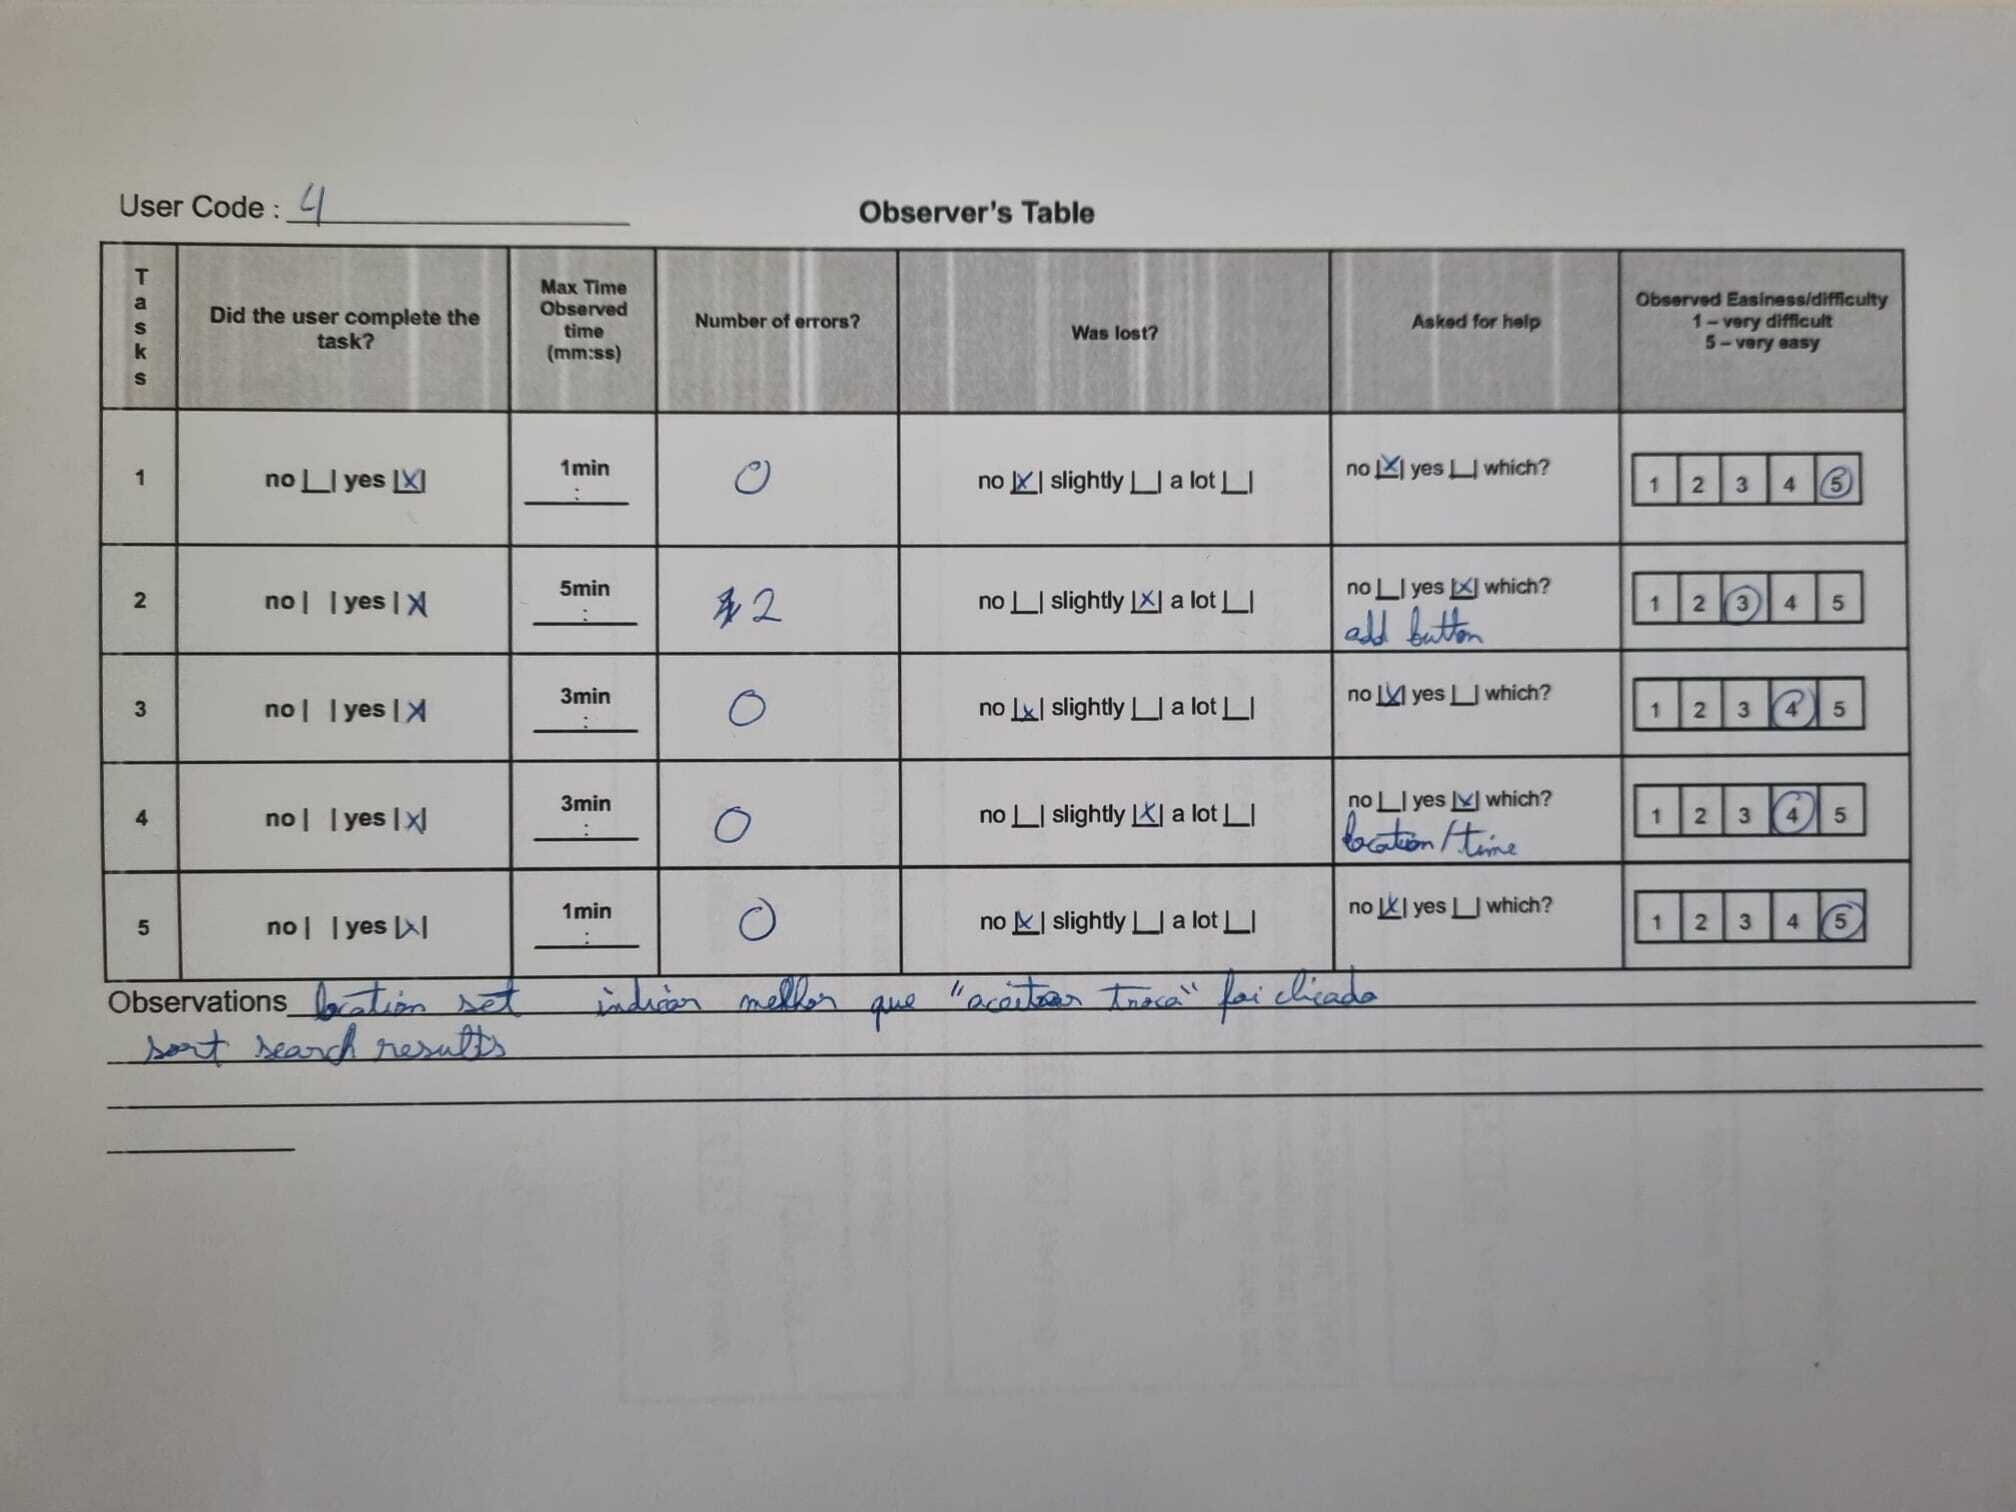 User Code : 4
Observer's Table
Tasks
Did the user complete the task?
Max Time Observed time (mm:ss)
Number of errors?
Was lost?
Asked for help
Observed Easiness/difficulty
1 – very difficult
5 – very easy
1 no |_| yes |x| 1min : 0 no |x| slightly |_| a lot |_| no |x| yes |_| which? 1 2 3 4 5
2 no | | yes |x| 5min : 2 no |_| slightly |x| a lot |_| no |_| yes |x| which? 1 2 3 4 5
add button
3 no | | yes |x| 3min : 0 no |x| slightly |_| a lot |_| no |x| yes |_| which? 1 2 3 4 5
4 no | | yes |x| 3min : 0 no |_| slightly |x| a lot |_| no |_| yes |x| which? 1 2 3 4 5
location/time
5 no | | yes |x| 1min : 0 no |x| slightly |_| a lot |_| no |x| yes |_| which? 1 2 3 4 5
Observations location set indicar melhor que "aceitar troca" foi clicado
sort search results